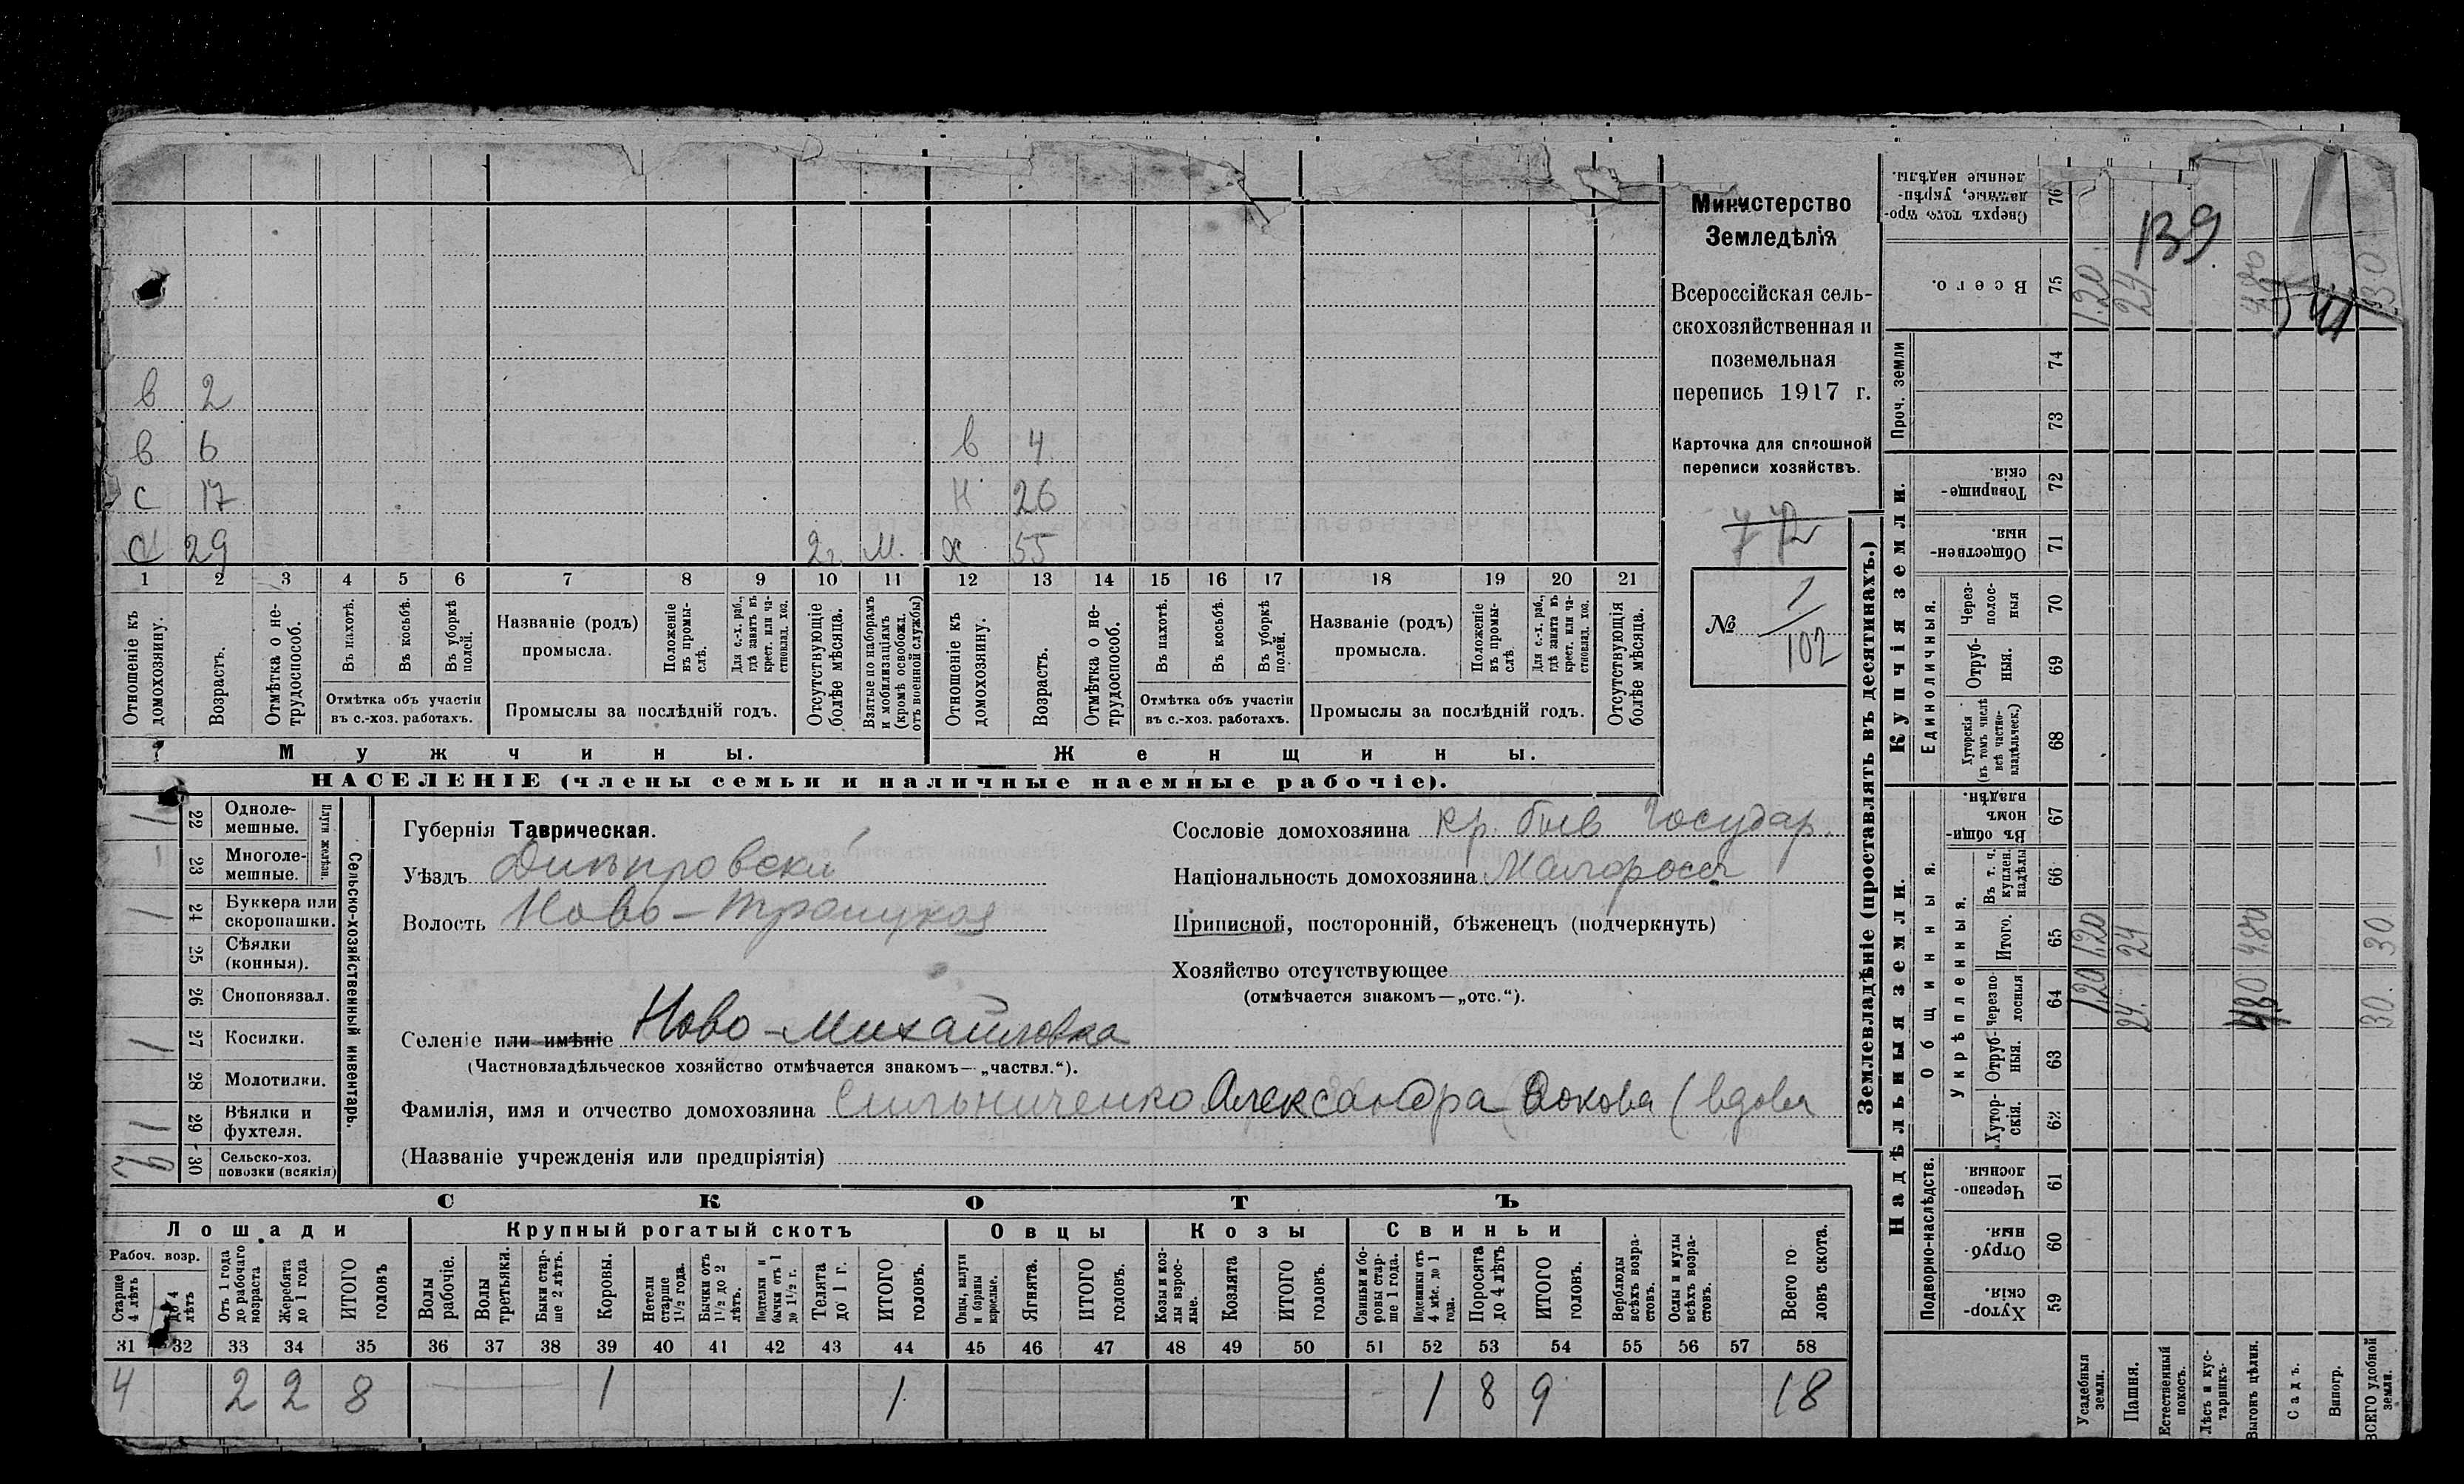 Министерство
Земледѣлія
Всероссійская сель-
скохозяйственная и
поземельная
перепись 1917 г.
Карточка для сплошной
переписи хозяйствъ.
72
№ 1/102
139
в 2
в 6 в 4
с 17 н 26
29 2г. м. х 55
1 2 3 4 5 6 7 8 9 10 11 12 13 14 15 16 17 18 19 20 21
Отношеніе къ домохозяину.
Возрастъ.
Отмѣтка о не-трудоспособ.
Въ пахотѣ.
Въ косьбѣ.
Въ уборкѣ полей.
Отмѣтка объ участіи
въ с.-хоз. работахъ.
Названіе (родъ)
промысла.
Положеніе въ промы-слѣ.
Для с.-х. раб., гдѣ занятъ въ крест. или ча-стновлад. хоз.
Промыслы за послѣдній годъ.
Отсутствующіе болѣе мѣсяца.
Взятые по наборамъ и мобилизаціямъ (кромѣ освобожд. отъ военной службы)
Отношеніе къ домохозяину.
Возрастъ.
Отмѣтка о не-трудоспособ.
Въ пахотѣ.
Въ косьбѣ.
Въ уборкѣ полей.
Отмѣтка объ участіи
въ с.-хоз. работахъ.
Названіе (родъ)
промысла.
Положеніе въ промы-слѣ.
Для с.-х. раб., гдѣ занята въ крест. или ча-стновлад. хоз.
Промыслы за послѣдній годъ.
Отсутствующія болѣе мѣсяца.
Мужчины. Женщины.
НАСЕЛЕНІЕ (члены семьи и наличные наемные рабочіе).
Сельско-хозяйственный инвентарь.
Плуги желѣзн.
1 22 Одноле-мешные.
23 Многоле-мешные.
1 24 Буккера или скоропашки.
25 Сѣялки (конныя).
26 Сноповязал.
1 27 Косилки.
28 Молотилки.
1 29 Вѣялки и фухтеля.
30 Сельско-хоз. повозки (всякія)
Губернія Таврическая.
Уѣздъ Днѣпровскій
Волость Ново-Троицкая
Сословіе домохозяина кр. быв Государ.
Національность домохозяина Малоросс
Приписной, посторонній, бѣженец (подчеркнуть)
Хозяйство отсутствующее
(отмѣчается знакомъ—„отс.“).
Селеніе или имѣніе Ново-Михайловка
(Частновладѣльческое хозяйство отмѣчается знакомъ—„частвл.“).
Фамилія, имя и отчество домохозяина Александра (вдова
(Названіе учрежденія или предпріятія)
СКОТЪ
Лошади Крупный рогатый скотъ Овцы Козы Свиньи
Рабоч. возр.
Старше 4 лѣтъ
до 4 лѣтъ
Отъ 1 года до рабочаго возраста
Жеребята до 1 года
ИТОГО головъ
Волы рабочіе.
Волы третьяки.
Быки стар-ше 2 лѣтъ.
Коровы.
Нетели старше 1½ года.
Бычки отъ 1½ до 2 лѣтъ.
Подтелки и бычки отъ 1 до 1½ г.
Телята до 1 г.
ИТОГО головъ.
Овцы, валухи и бараны взрослые.
Ягнята.
ИТОГО головъ.
Козы и коз-лы взрос-лые.
Козлята
ИТОГО головъ.
Свиньи и бо-ровы стар-ше 1 года.
Подсвинки отъ 4 мѣс. до 1 года.
Поросята до 4 лѣтъ
ИТОГО головъ.
Верблюды всѣхъ возра-стовъ.
Ослы и мулы всѣхъ возра-стовъ.
Всего го-ловъ скота.
31 32 33 34 35 36 37 38 39 40 41 42 43 44 45 46 47 48 49 50 51 52 53 54 55 56 57 58
4 2 2 8 1 1 1 8 9 18
Землевладѣніе (проставлять въ десятинахъ.)
Надѣльныя земли. Купчія земли.
Подворно-наслѣдств.
Общинныя.
Укрѣпленныя.
Единоличныя.
Проч. земли
59 Хутор-скія.
60 Отруб-ныя.
61 Черезпо-лосныя.
62 Хутор-скія.
63 Отруб-ныя.
64 Черезпо-лосныя
65 Итого.
66 Въ т. ч. куплен. надѣлы
67 Въ общи-номъ владѣн.
68 Хуторскія (въ томъ числѣ всѣ частно-владѣльческ.)
69 Отруб-ныя.
70 Через-полос-ныя
71 Обществен-ныя
72 Товарище-скія.
73
74
75 Всего.
76 Сверхъ того про-данные, укрѣп-ленные надѣлы.
Усадебныя земли. 1.20 1.20 1.20
Пашня. 24. 24 24
Естественный покосъ.
Лѣсъ и кус-тарникъ.
Выгонъ цѣлин. 4.80 4.80 4.80
Садъ.
Виногр.
ВСЕГО удобной земли. 30. 30 30